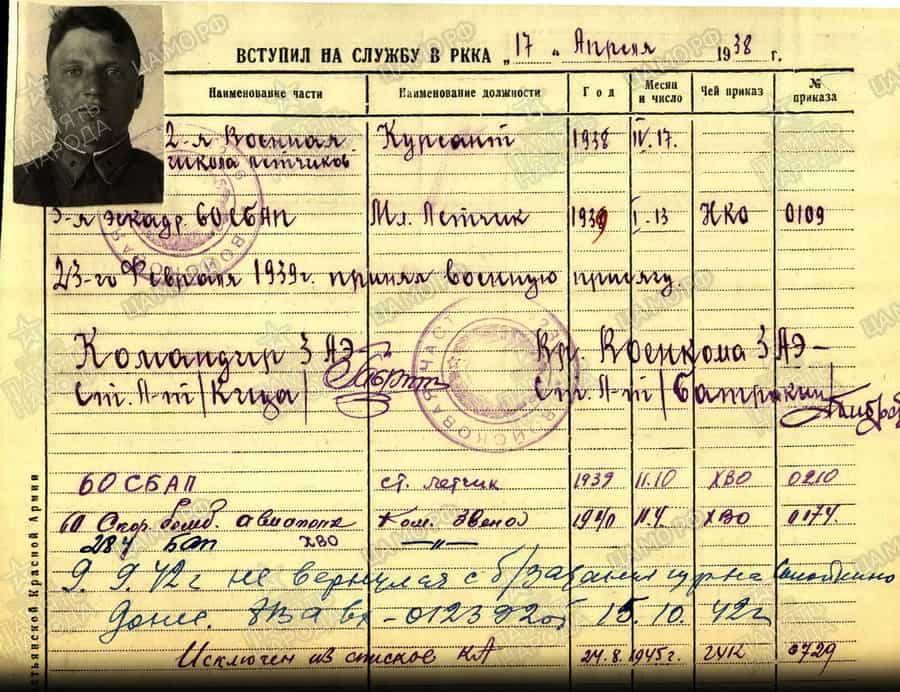 ВСТУПИЛ НА СЛУЖБУ В РККА „17“ Апреля 1938 г.
Наименование части Наименование должности Год Месяц и число Чей приказ № приказа
2-я Военная школа летчиков Курсант 1938 IV.17.
3-я эскадр. 60СБАП Мл. Летчик 1939 I-13 НКО 0109
23-го Февраля 1939г. принял военную присягу.
Командир 3 АЭ Вр. Военкома 3 АЭ-
Ст. Л-т /Кица/ Ст. Л-т /Батракин/
60 СБАП ст. летчик 1939 11.10 ХВО 0210
60 Скор. бомб. авиаполк Ком. Звена 1940 11.4 ХВО 0174
284 БАП ХВО —"—
9. 9. 42г не вернулся с б/задания
донес. 8ВА вх-012392 15.10.42г
Исключен из списков КА 24.8.1945г. ГУК 0729
стьянской Красной Армии
ВОЙСКОВАЯ ЧАСТЬ
ПАМЯТЬ НАРОДА
ЦАМО.РФ